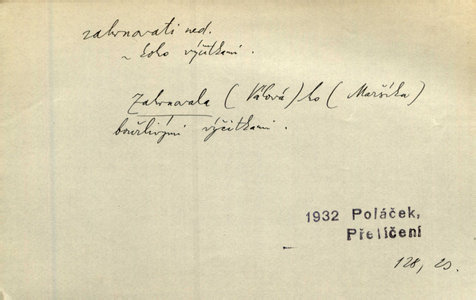 zahrnovati ned.
~ koho výčitkami.
Zahrnovala (Válová) ho (Maršíka)
bouřlivými výčitkami.
1932 Poláček,
Přelíčení
128, 25.